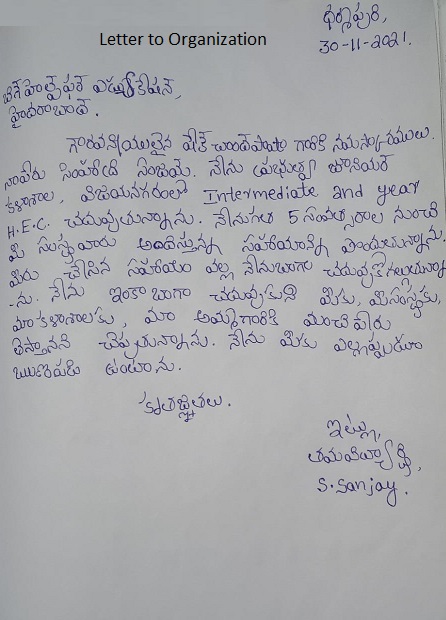 Letter to Organization
ధర్మపురి,
30-11-2021.
బిగ్ హెల్ప్ ఫర్ ఎడ్యుకేషన్,
హైదరాబాద్.
గౌరవనీయులైన చాంద్ పాషా గారికి నమస్కారములు.
నాపేరు సింహాద్రి సంజయ్. నేను ప్రభుత్వ జూనియర్
కళాశాల, విజయనగరంలో Intermediate 2nd year
H.E.C. చదువుతున్నాను. నేను గత 5 సంవత్సరాల నుంచి
మీ సంస్థవారు అందిస్తున్న సహాయాన్ని పొందుతున్నాను.
మీరు చేసిన సహాయం వల్ల నేను బాగా చదువుకోగలుగుతున్నా
-ను. నేను ఇంకా బాగా చదువుకుని మీకు, మీసంస్థకు,
మా కళాశాలకు, మా అమ్మగారికి మంచి పేరు
తెస్తానని చెప్పుతున్నాను. నేను మీకు ఎల్లప్పుడూ
ఋణపడి ఉంటాను.
కృతజ్ఞతలు.
ఇట్లు,
తమ విద్యార్థి,
S.Sanjay.